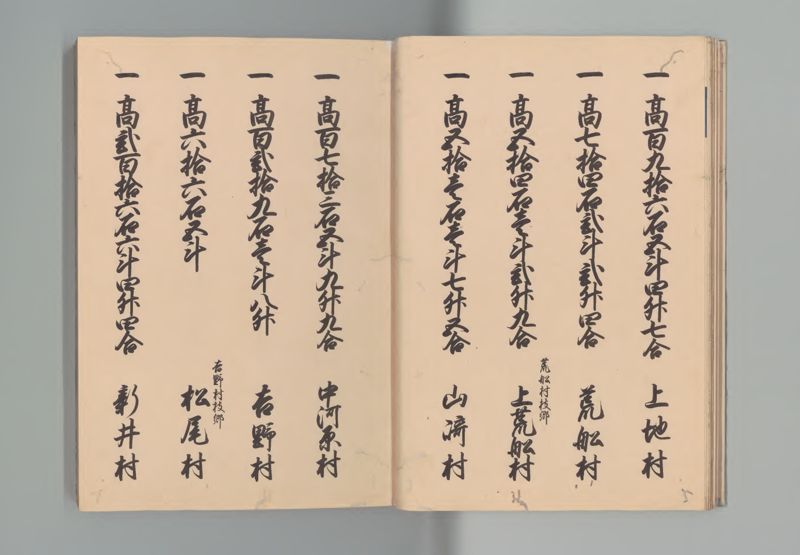 一 高百九拾六石五斗四升七合 上地村
一 高七拾四石弐斗弐升四合 荒船村
荒船村枝郷
一 高五拾四石壱斗弐升九合 上荒船村
一 高五拾壱石壱斗七升五合 山崎村
一 高百七拾三石五斗九升九合 中河原村
一 高百弐拾九石壱斗八升 吉野村
吉野村枝郷
一 高六拾六石五斗 松尾村
一 高弐百拾六石六斗四升四合 新井村